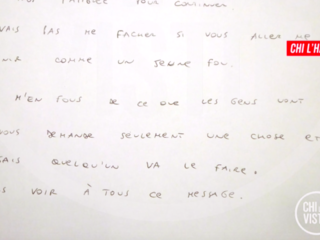 POUR CONTINUER
VAIS PAS ME FACHER SI VOUS ALLEZ ME
COMME UN JEUNE FOU.
M'EN FOUS DE CE QUE LES GENS VONT
DEMANDE SEULEMENT UNE CHOSE ET
QUELQU'UN VA LE FAIRE.
VOIR À TOUS CE MESSAGE.
CHI L'HA
CHI
VIST